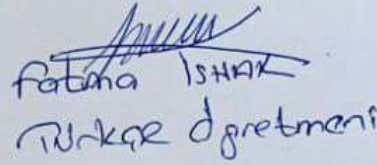 Fatma ISHAK
Türkçe Öğretmeni